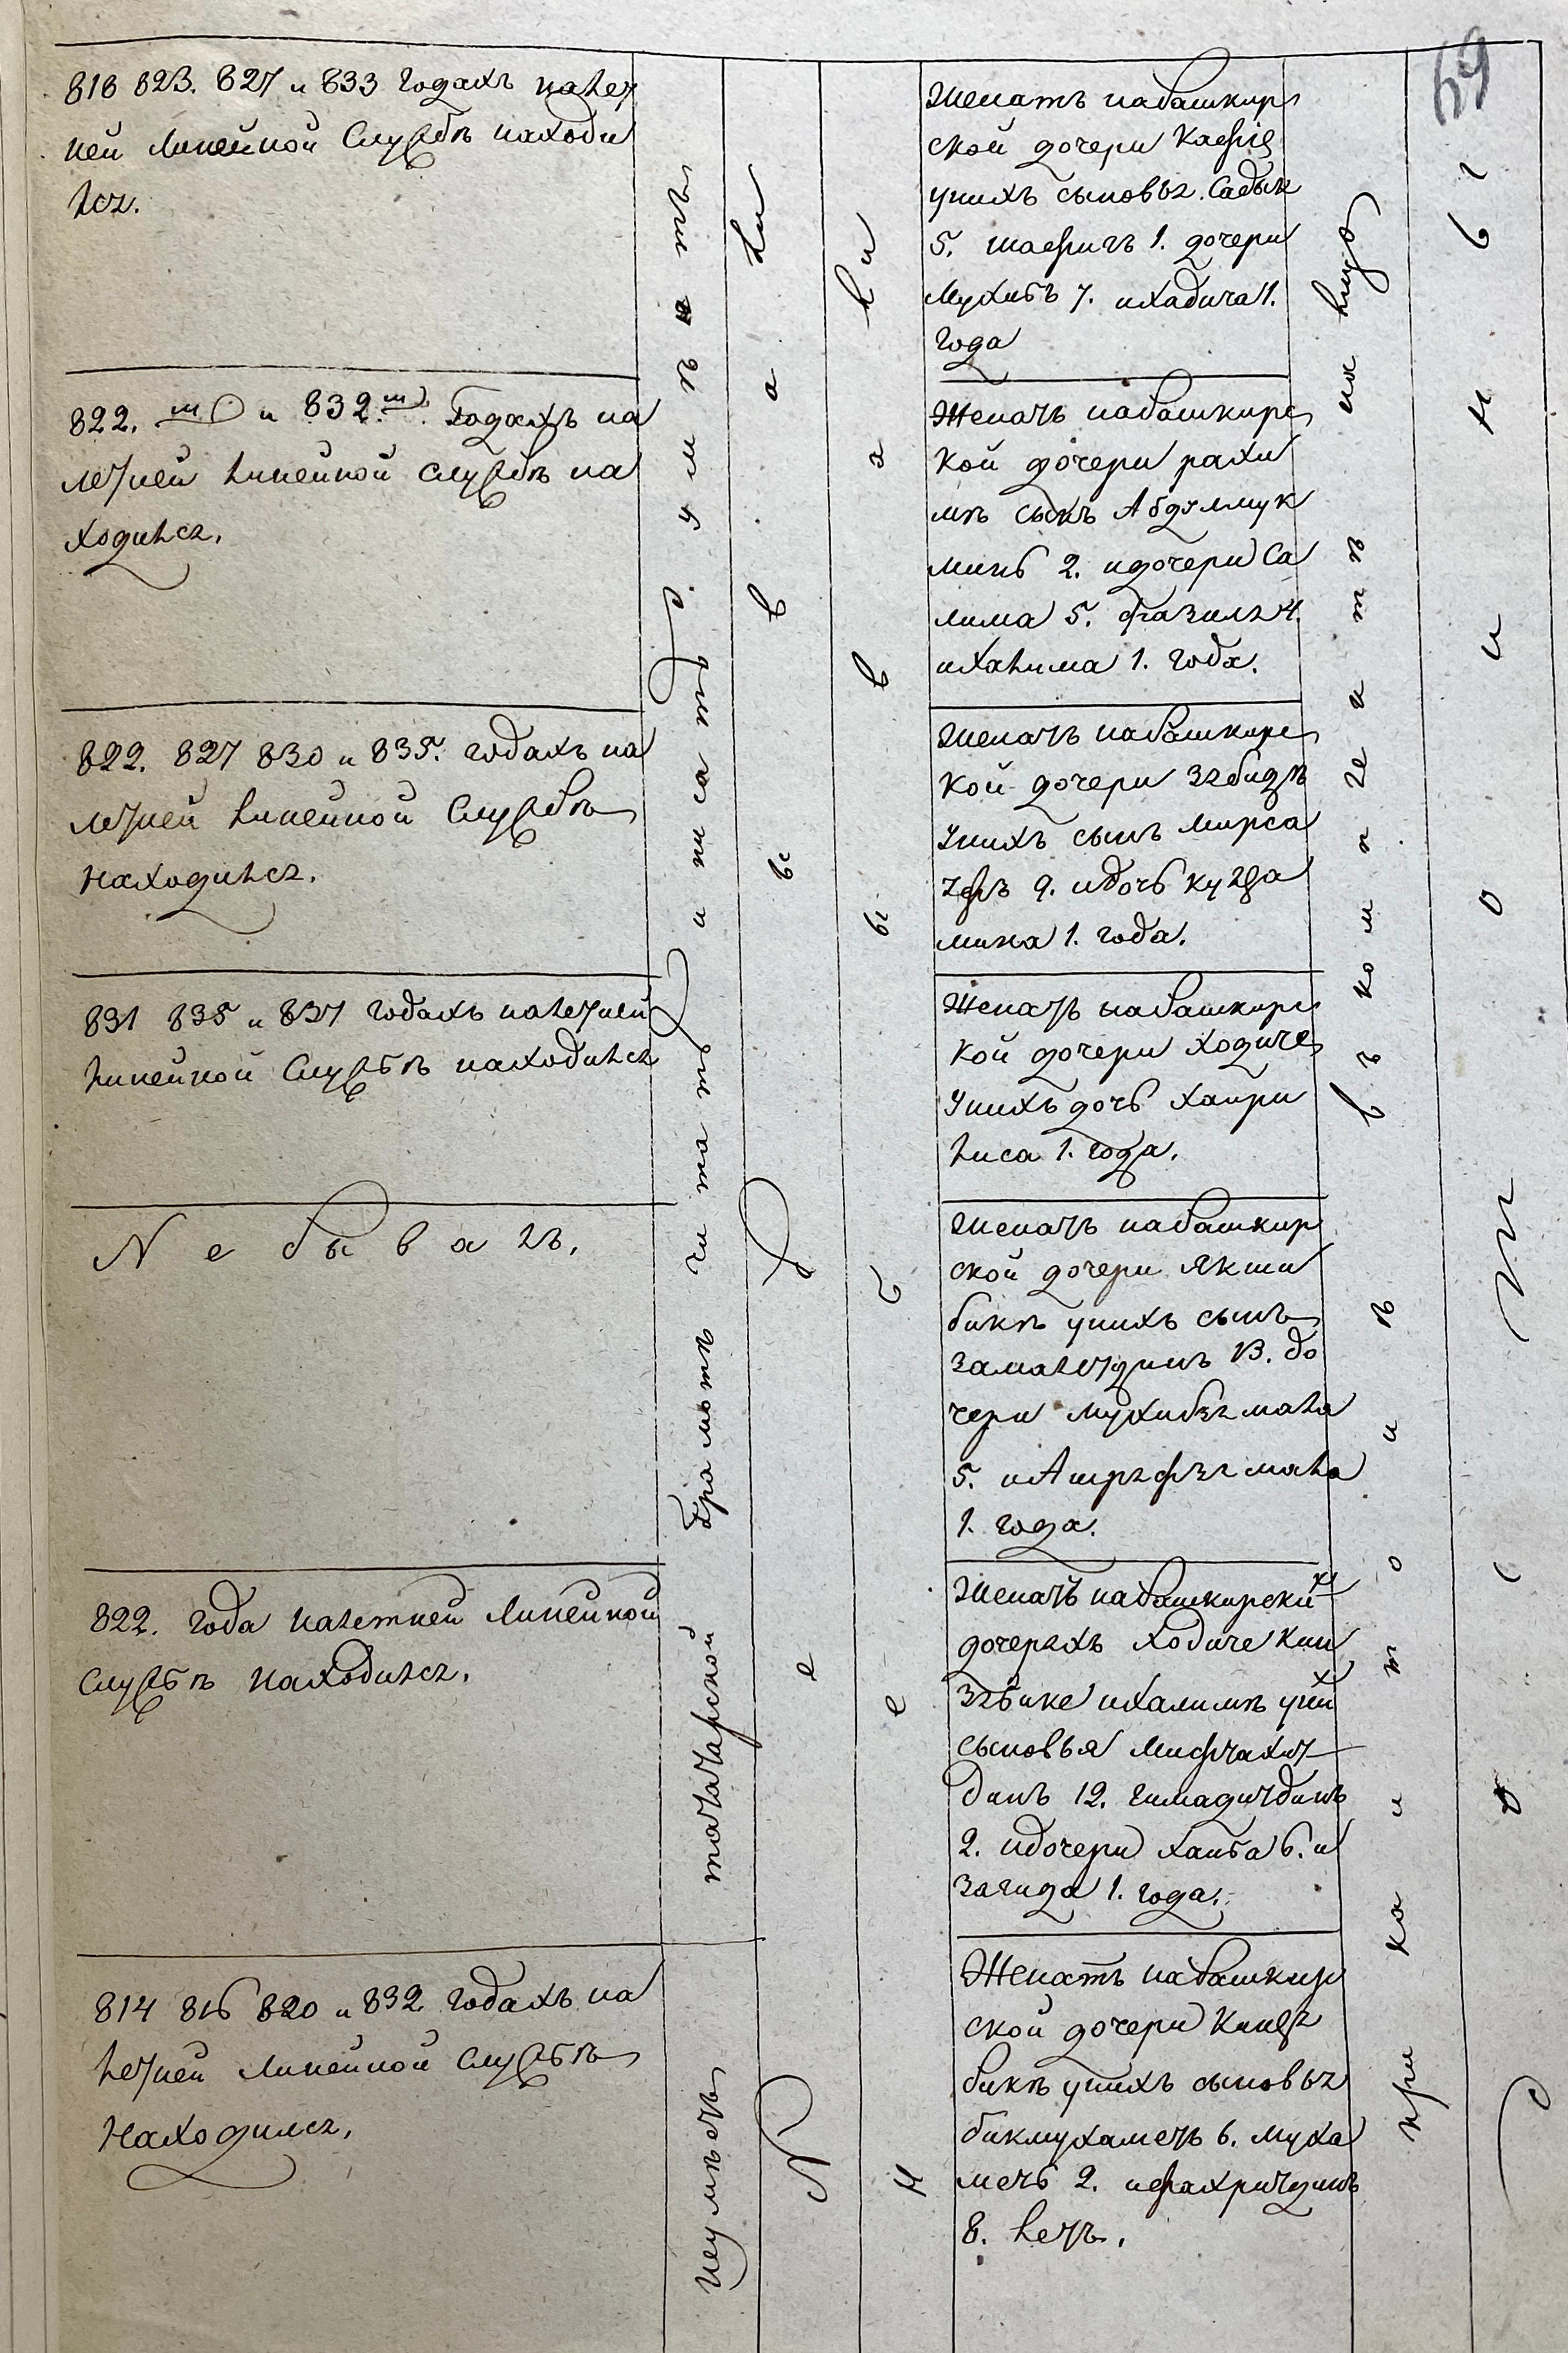 69
818 823. 827 и 833 годахъ налет
ней линейной службѣ находи
лся.
822.го и 832.го годахъ на
летней линейной службѣ на
ходился.
822. 827 830 и 835. годахъ на
летней линейной службѣ
находился.
831 835 и 837 годахъ налетней
линейной службѣ находился
Не бывалъ.
822. года налетней линейной
службѣ находился.
814 816 820 и 832 годахъ на
летней линейной службѣ
находился.
татарской грамотѣ читать и писать умѣетъ
неумѣетъ
Не бывали
Не бывали
Женатъ набашкир
ской дочери
унихъ сыновья Садык
5. шафигъ 1. дочери
Мухибъ 7. ихадича 1.
года
Женатъ набашкирс
кой дочери рахи
мѣ сынъ Абдулмук
минъ 2. идочери Са
лима 5. фазиля 4.
ихалима 1. года.
Женатъ набашкирс
кой дочери зябидѣ
унихъ сынъ мирса
яфъ 9. идочь
мина 1. года.
Женатъ набашкирс
кой дочери ходиче
унихъ дочь хаири
лиса 1. года.
Женатъ набашкир
ской дочери якши
бикѣ унихъ сынъ
замалетдинъ 13. до
чери мухибзямала
5. иАшряфзямала
1. года.
Женатъ набашкирских
дочеряхъ ходиче
зябике ихалимѣ уних
сыновья мифтахит
динъ 12. гимадитдинъ
2. идочери хаиба 6. и
загида 1. года.
Женатъ набашкир
ской дочери
бикѣ унихъ сыновья
бикмухаметь 6. муха
меть 2. ифахритдинъ
8. летъ.
при кантонѣ
въ комплектѣ на лицо
Состоины